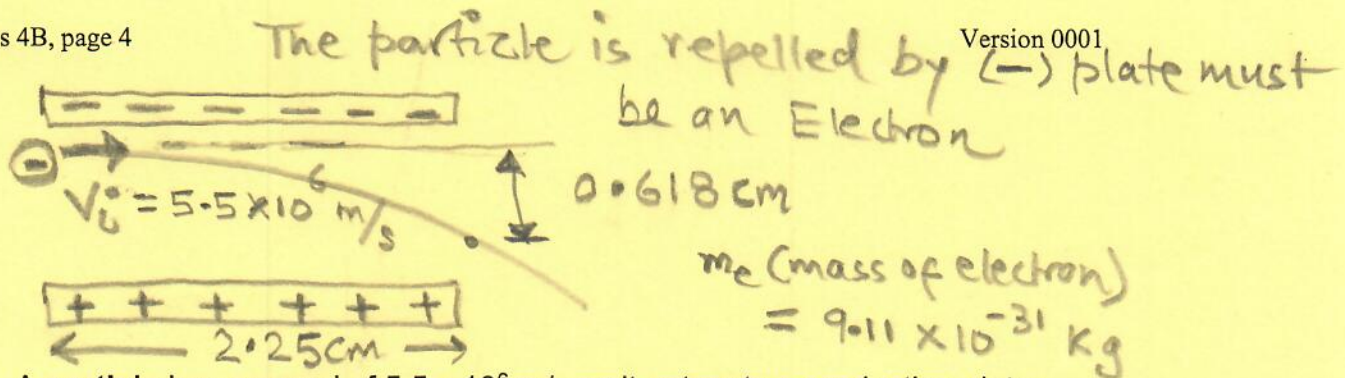 s 4B, page 4
Version 0001
The particle is repelled by (-) plate must
be an Electron
- - - - - -
-
Vi = 5.5 x 10^6 m/s
0.618 cm
me (mass of electron)
= 9.11 x 10^-31 Kg
+ + + + + +
2.25cm